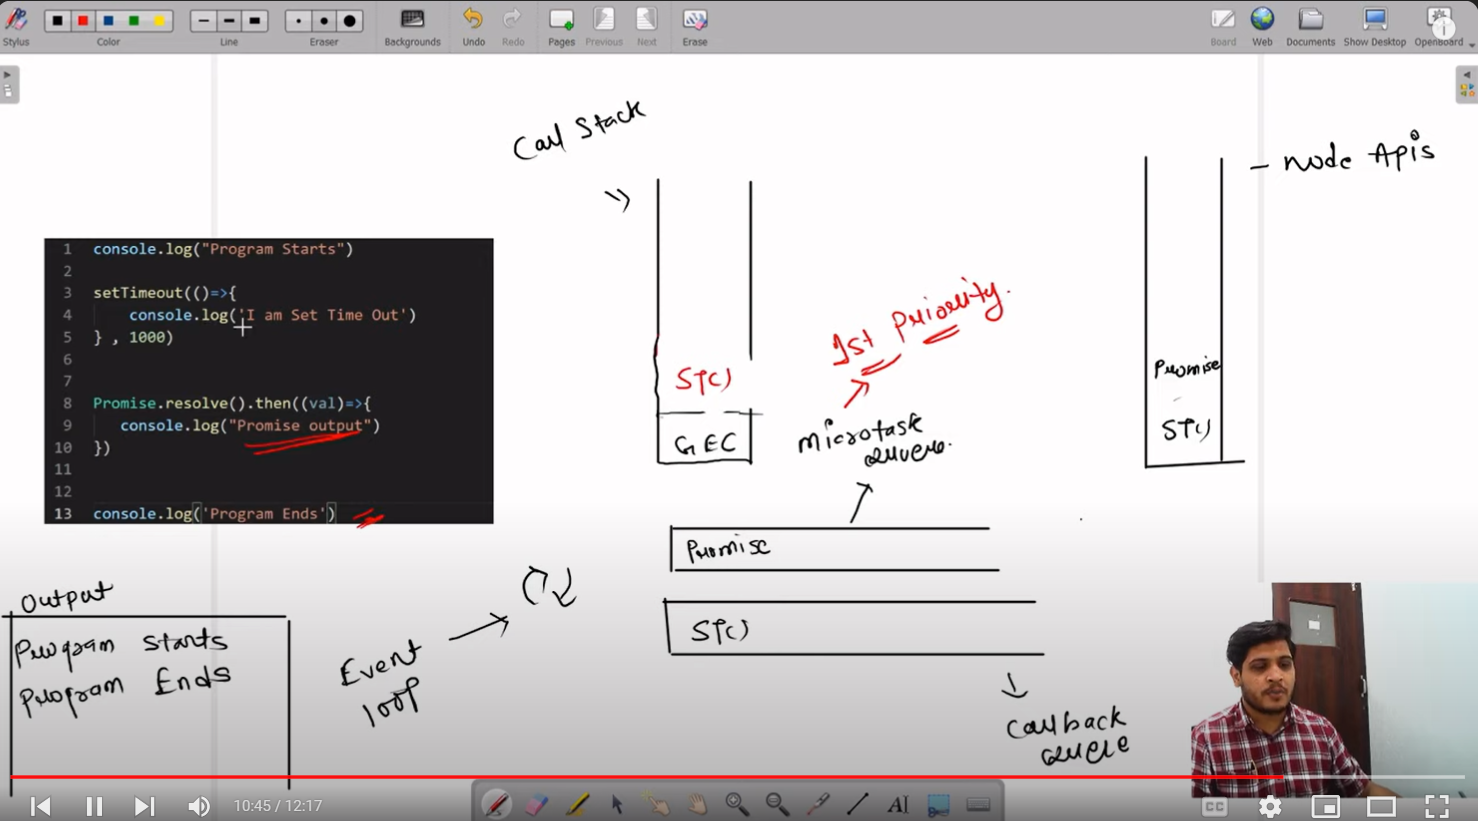 Stylus
Color
Line
Eraser
Backgrounds
Undo
Redo
Pages
Previous
Next
Erase
Board
Web
Documents
Show Desktop
OpenBoard
Call Stack
- Node Apis
1 console.log("Program Starts")
2
3 setTimeout(()=>{
4 console.log('I am Set Time Out')
5 } , 1000)
6
7
8 Promise.resolve().then((val)=>{
9 console.log("Promise output")
10 })
11
12
13 console.log('Program Ends')
1st Priority.
ST()
GEC
Microtask
Queue.
Promise
ST()
Promise
ST()
Output
Program Starts
Program Ends
Event
loop
Callback
Queue
10:45 / 12:17
CC
AI